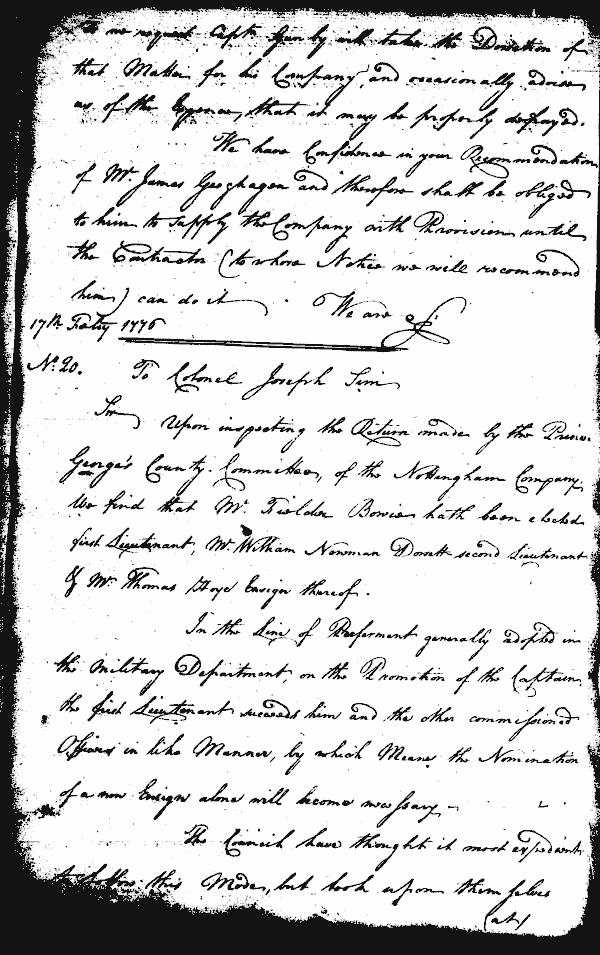 we request Capt. Gunby will take the Direction of
that Matter for his Company, and occasionally advise
us of the Expence, that it may be properly defrayed.
We have Confidence in your Recommendation
of Mr. James Geoghagen and therefore shall be obliged
to him to supply the Company with Provision until
the Contractor (to whose Notice we will recommend
him) can do it. We are &c.
17th. Feby 1776
No. 20. To Colonel Joseph Sim
Sir Upon inspecting the Return made by the Prince
George's County Committee, of the Nottingham Company,
we find that Mr. Fielder Bowie hath been elected
first Lieutenant, Mr. William Newman Dorsett second Lieutenant
& Mr. Thomas Hoye Ensign thereof.
In the Line of Preferment generally adopted in
the Military Department on the Promotion of the Captain,
the first Lieutenant succeeds him and the other commissioned
Officers in like Manner, by which Means the Nomination
of a new Ensign alone will become necessary.
The Council have thought it most expedient
to follow this Mode, but took upon themselves
(at)